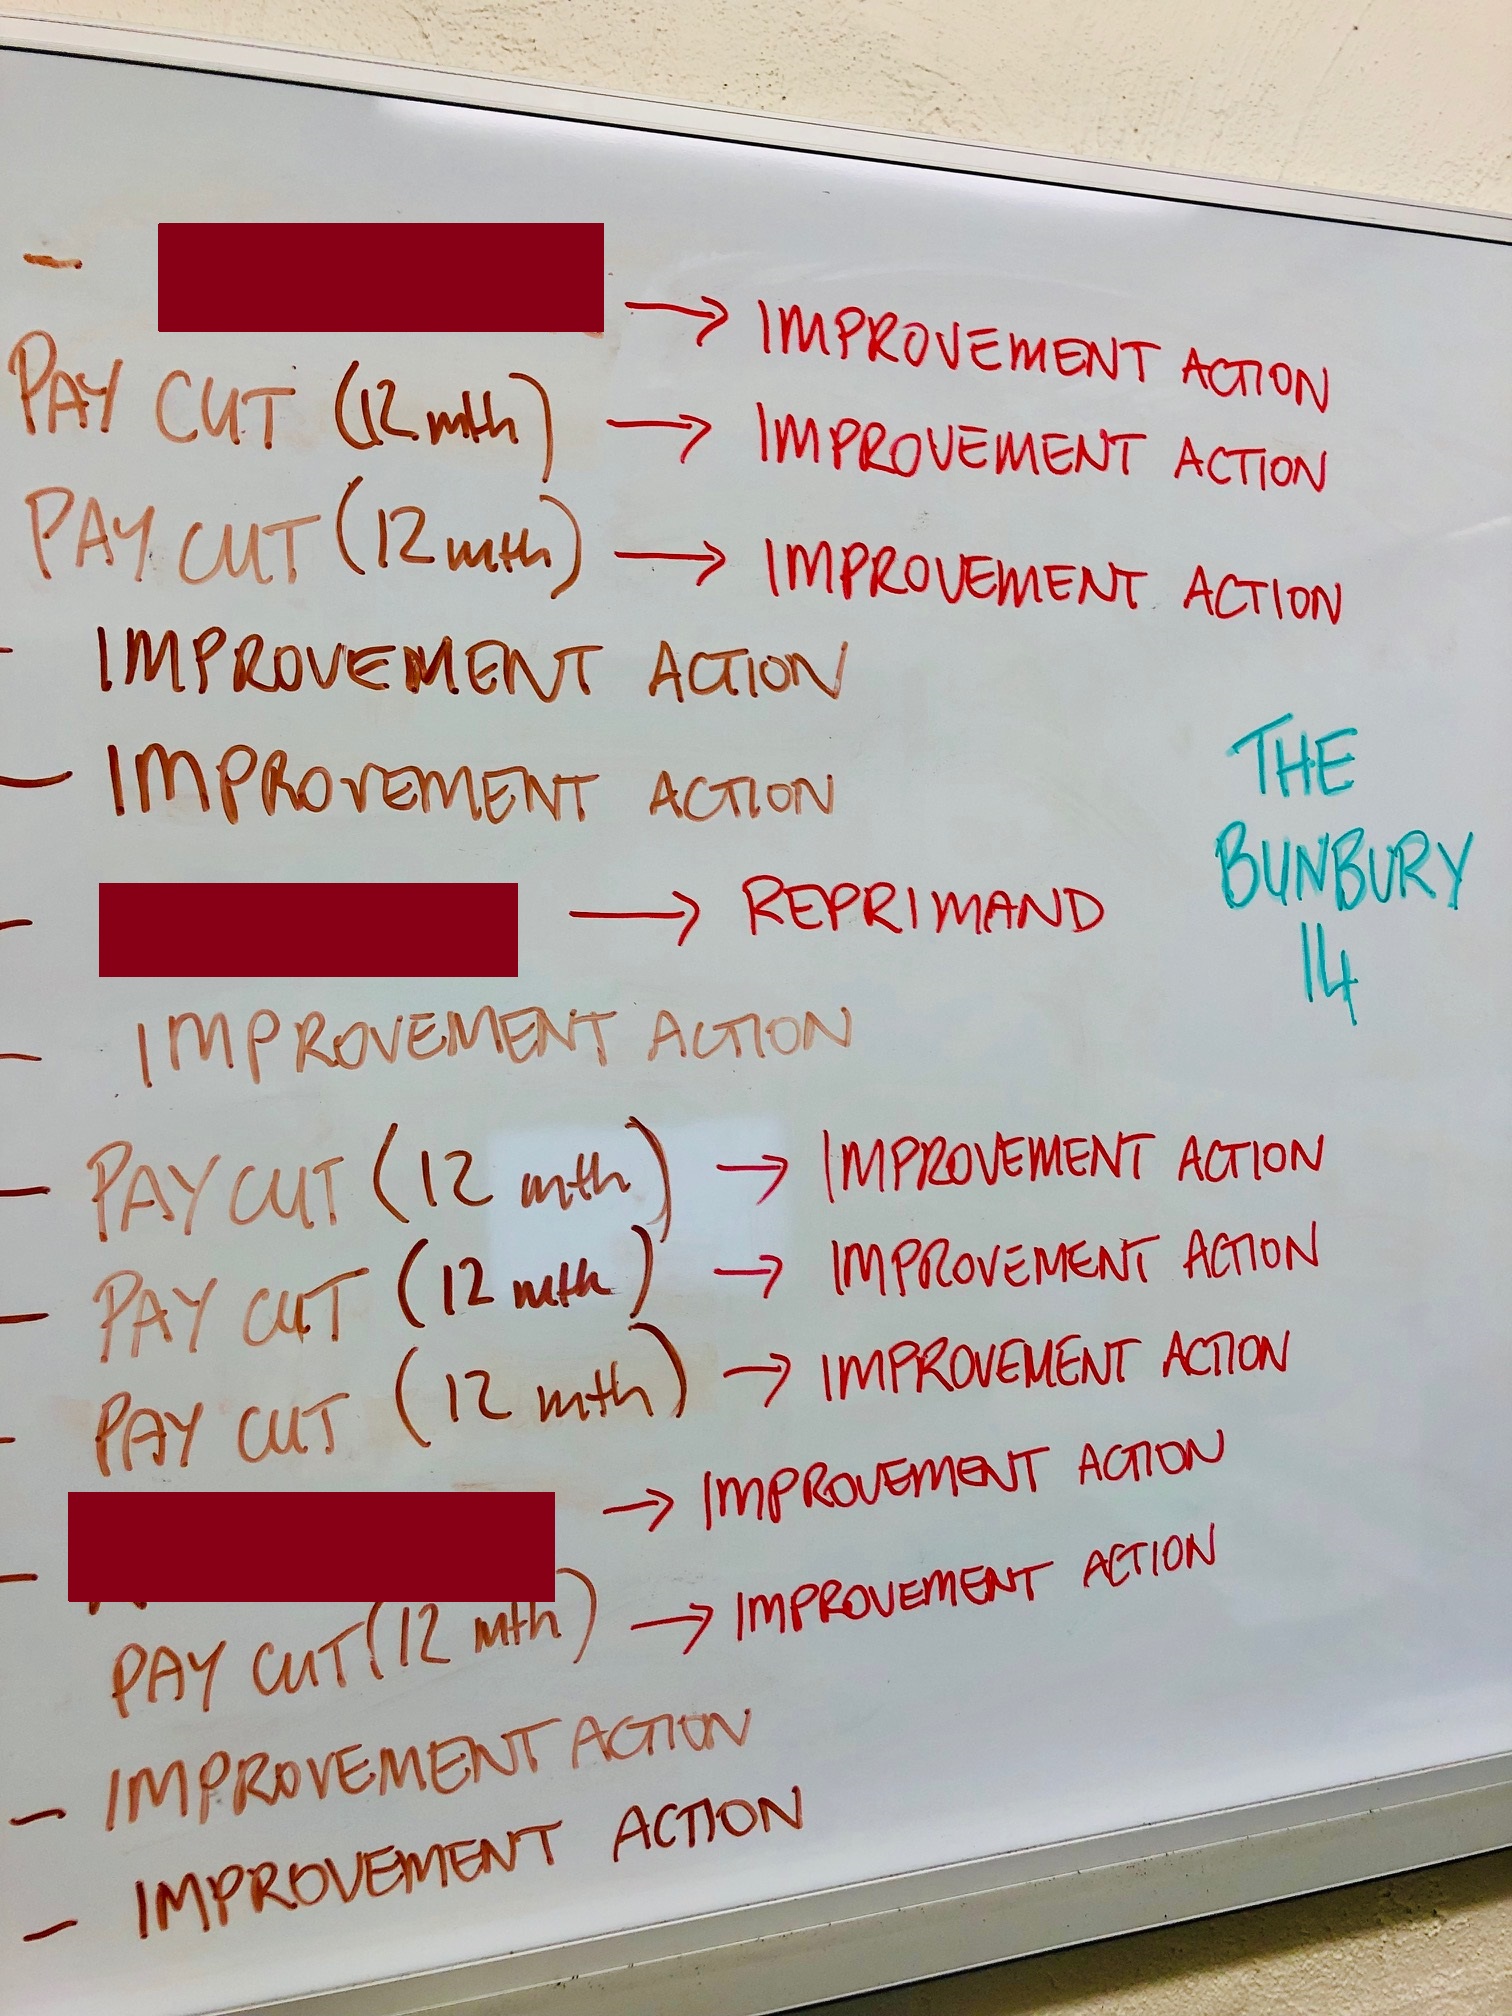 - → IMPROVEMENT ACTION
PAY CUT (12 mth) → IMPROVEMENT ACTION
PAY CUT (12 mth) → IMPROVEMENT ACTION
- IMPROVEMENT ACTION
- IMPROVEMENT ACTION
THE
BUNBURY
14
- → REPRIMAND
- IMPROVEMENT ACTION
- PAY CUT (12 mth) → IMPROVEMENT ACTION
- PAY CUT (12 mth) → IMPROVEMENT ACTION
- PAY CUT (12 mth) → IMPROVEMENT ACTION
- → IMPROVEMENT ACTION
PAY CUT (12 mth) → IMPROVEMENT ACTION
- IMPROVEMENT ACTION
- IMPROVEMENT ACTION